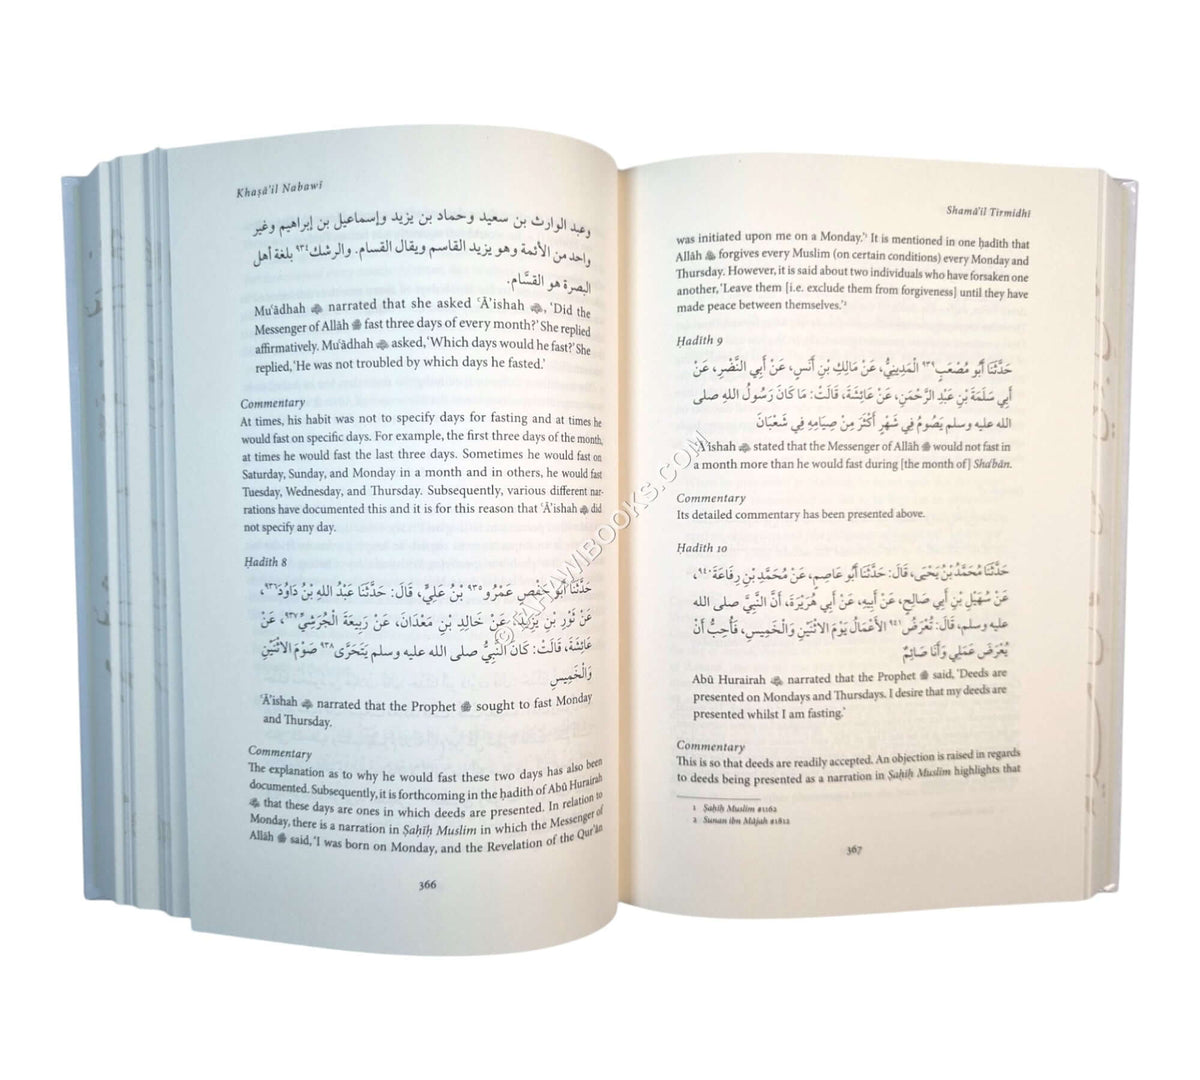 Khaṣā'il Nabawī
وعبد الوارث بن سعيد وحماد بن يزيد وإسماعيل بن إبراهيم وغير
واحد من الأئمة وهو يزيد القاسم ويقال القسام. والرشك٩٣٤ بلغة أهل
البصرة هو القسَّام.
Mu'ādhah ؓ narrated that she asked 'Ā'ishah ؓ, 'Did the
Messenger of Allāh ﷺ fast three days of every month?' She replied
affirmatively. Mu'ādhah ؓ asked, 'Which days would he fast?' She
replied, 'He was not troubled by which days he fasted.'
Commentary
At times, his habit was not to specify days for fasting and at times he
would fast on specific days. For example, the first three days of the month,
at times he would fast the last three days. Sometimes he would fast on
Saturday, Sunday, and Monday in a month and in others, he would fast
Tuesday, Wednesday, and Thursday. Subsequently, various different nar-
rations have documented this and it is for this reason that 'Ā'ishah ؓ did
not specify any day.
Ḥadīth 8
حَدَّثَنَا أَبُو حَفْصٍ عَمْرُو٩٣٥ بْنُ عَلِيٍّ، قَالَ: حَدَّثَنَا عَبْدُ اللهِ بْنُ دَاوُدَ٩٣٦،
عَنْ ثَوْرِ بْنِ يَزِيدَ، عَنْ خَالِدِ بْنِ مَعْدَانَ، عَنْ رَبِيعَةَ الْجُرَشِيِّ٩٣٧، عَنْ
عَائِشَةَ، قَالَتْ: كَانَ النَّبِيُّ صلى الله عليه وسلم يَتَحَرَّى٩٣٨ صَوْمَ الاثْنَيْنِ
وَالْخَمِيسِ
'Ā'ishah ؓ narrated that the Prophet ﷺ sought to fast Monday
and Thursday.
Commentary
The explanation as to why he would fast these two days has also been
documented. Subsequently, it is forthcoming in the ḥadīth of Abū Hurairah
ؓ that these days are ones in which deeds are presented. In relation to
Monday, there is a narration in Ṣaḥīḥ Muslim in which the Messenger of
Allāh ﷺ said, 'I was born on Monday, and the Revelation of the Qur'ān
366
Shamā'il Tirmidhī
was initiated upon me on a Monday.'¹ It is mentioned in one ḥadīth that
Allāh ﷻ forgives every Muslim (on certain conditions) every Monday and
Thursday. However, it is said about two individuals who have forsaken one
another, 'Leave them [i.e. exclude them from forgiveness] until they have
made peace between themselves.'²
Ḥadīth 9
حَدَّثَنَا أَبُو مُصْعَبٍ٩٣٩ الْمَدِينِيُّ، عَنْ مَالِكِ بْنِ أَنَسٍ، عَنْ أَبِي النَّضْرِ، عَنْ
أَبِي سَلَمَةَ بْنِ عَبْدِ الرَّحْمَنِ، عَنْ عَائِشَةَ، قَالَتْ: مَا كَانَ رَسُولُ اللهِ صلى
الله عليه وسلم يَصُومُ فِي شَهْرٍ أَكْثَرَ مِنْ صِيَامِهِ فِي شَعْبَانَ
'Ā'ishah ؓ stated that the Messenger of Allāh ﷺ would not fast in
a month more than he would fast during [the month of] Sha'bān.
Commentary
Its detailed commentary has been presented above.
Ḥadīth 10
حَدَّثَنَا مُحَمَّدُ بْنُ يَحْيَى، قَالَ: حَدَّثَنَا أَبُو عَاصِمٍ، عَنْ مُحَمَّدِ بْنِ رِفَاعَةَ٩٤٠،
عَنْ سُهَيْلِ بْنِ أَبِي صَالِحٍ، عَنْ أَبِيهِ، عَنْ أَبِي هُرَيْرَةَ، أَنَّ النَّبِيَّ صلى الله
عليه وسلم، قَالَ: تُعْرَضُ٩٤١ الأَعْمَالُ يَوْمَ الاثْنَيْنِ وَالْخَمِيسِ، فَأُحِبُّ أَنْ
يُعْرَضَ عَمَلِي وَأَنَا صَائِمٌ
Abū Hurairah ؓ narrated that the Prophet ﷺ said, 'Deeds are
presented on Mondays and Thursdays. I desire that my deeds are
presented whilst I am fasting.'
Commentary
This is so that deeds are readily accepted. An objection is raised in regards
to deeds being presented as a narration in Ṣaḥīḥ Muslim highlights that
1 Ṣaḥīḥ Muslim #1162
2 Sunan ibn Mājah #1812
367